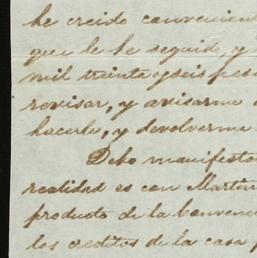 he creido convenient
que le he seguido, y
mil treinta y seis pes
revisar, y avisarme
hacerlo, y devolverme
Debo manifesta
realidad es con Martin
producto de la Convenc
los creditos de la casa